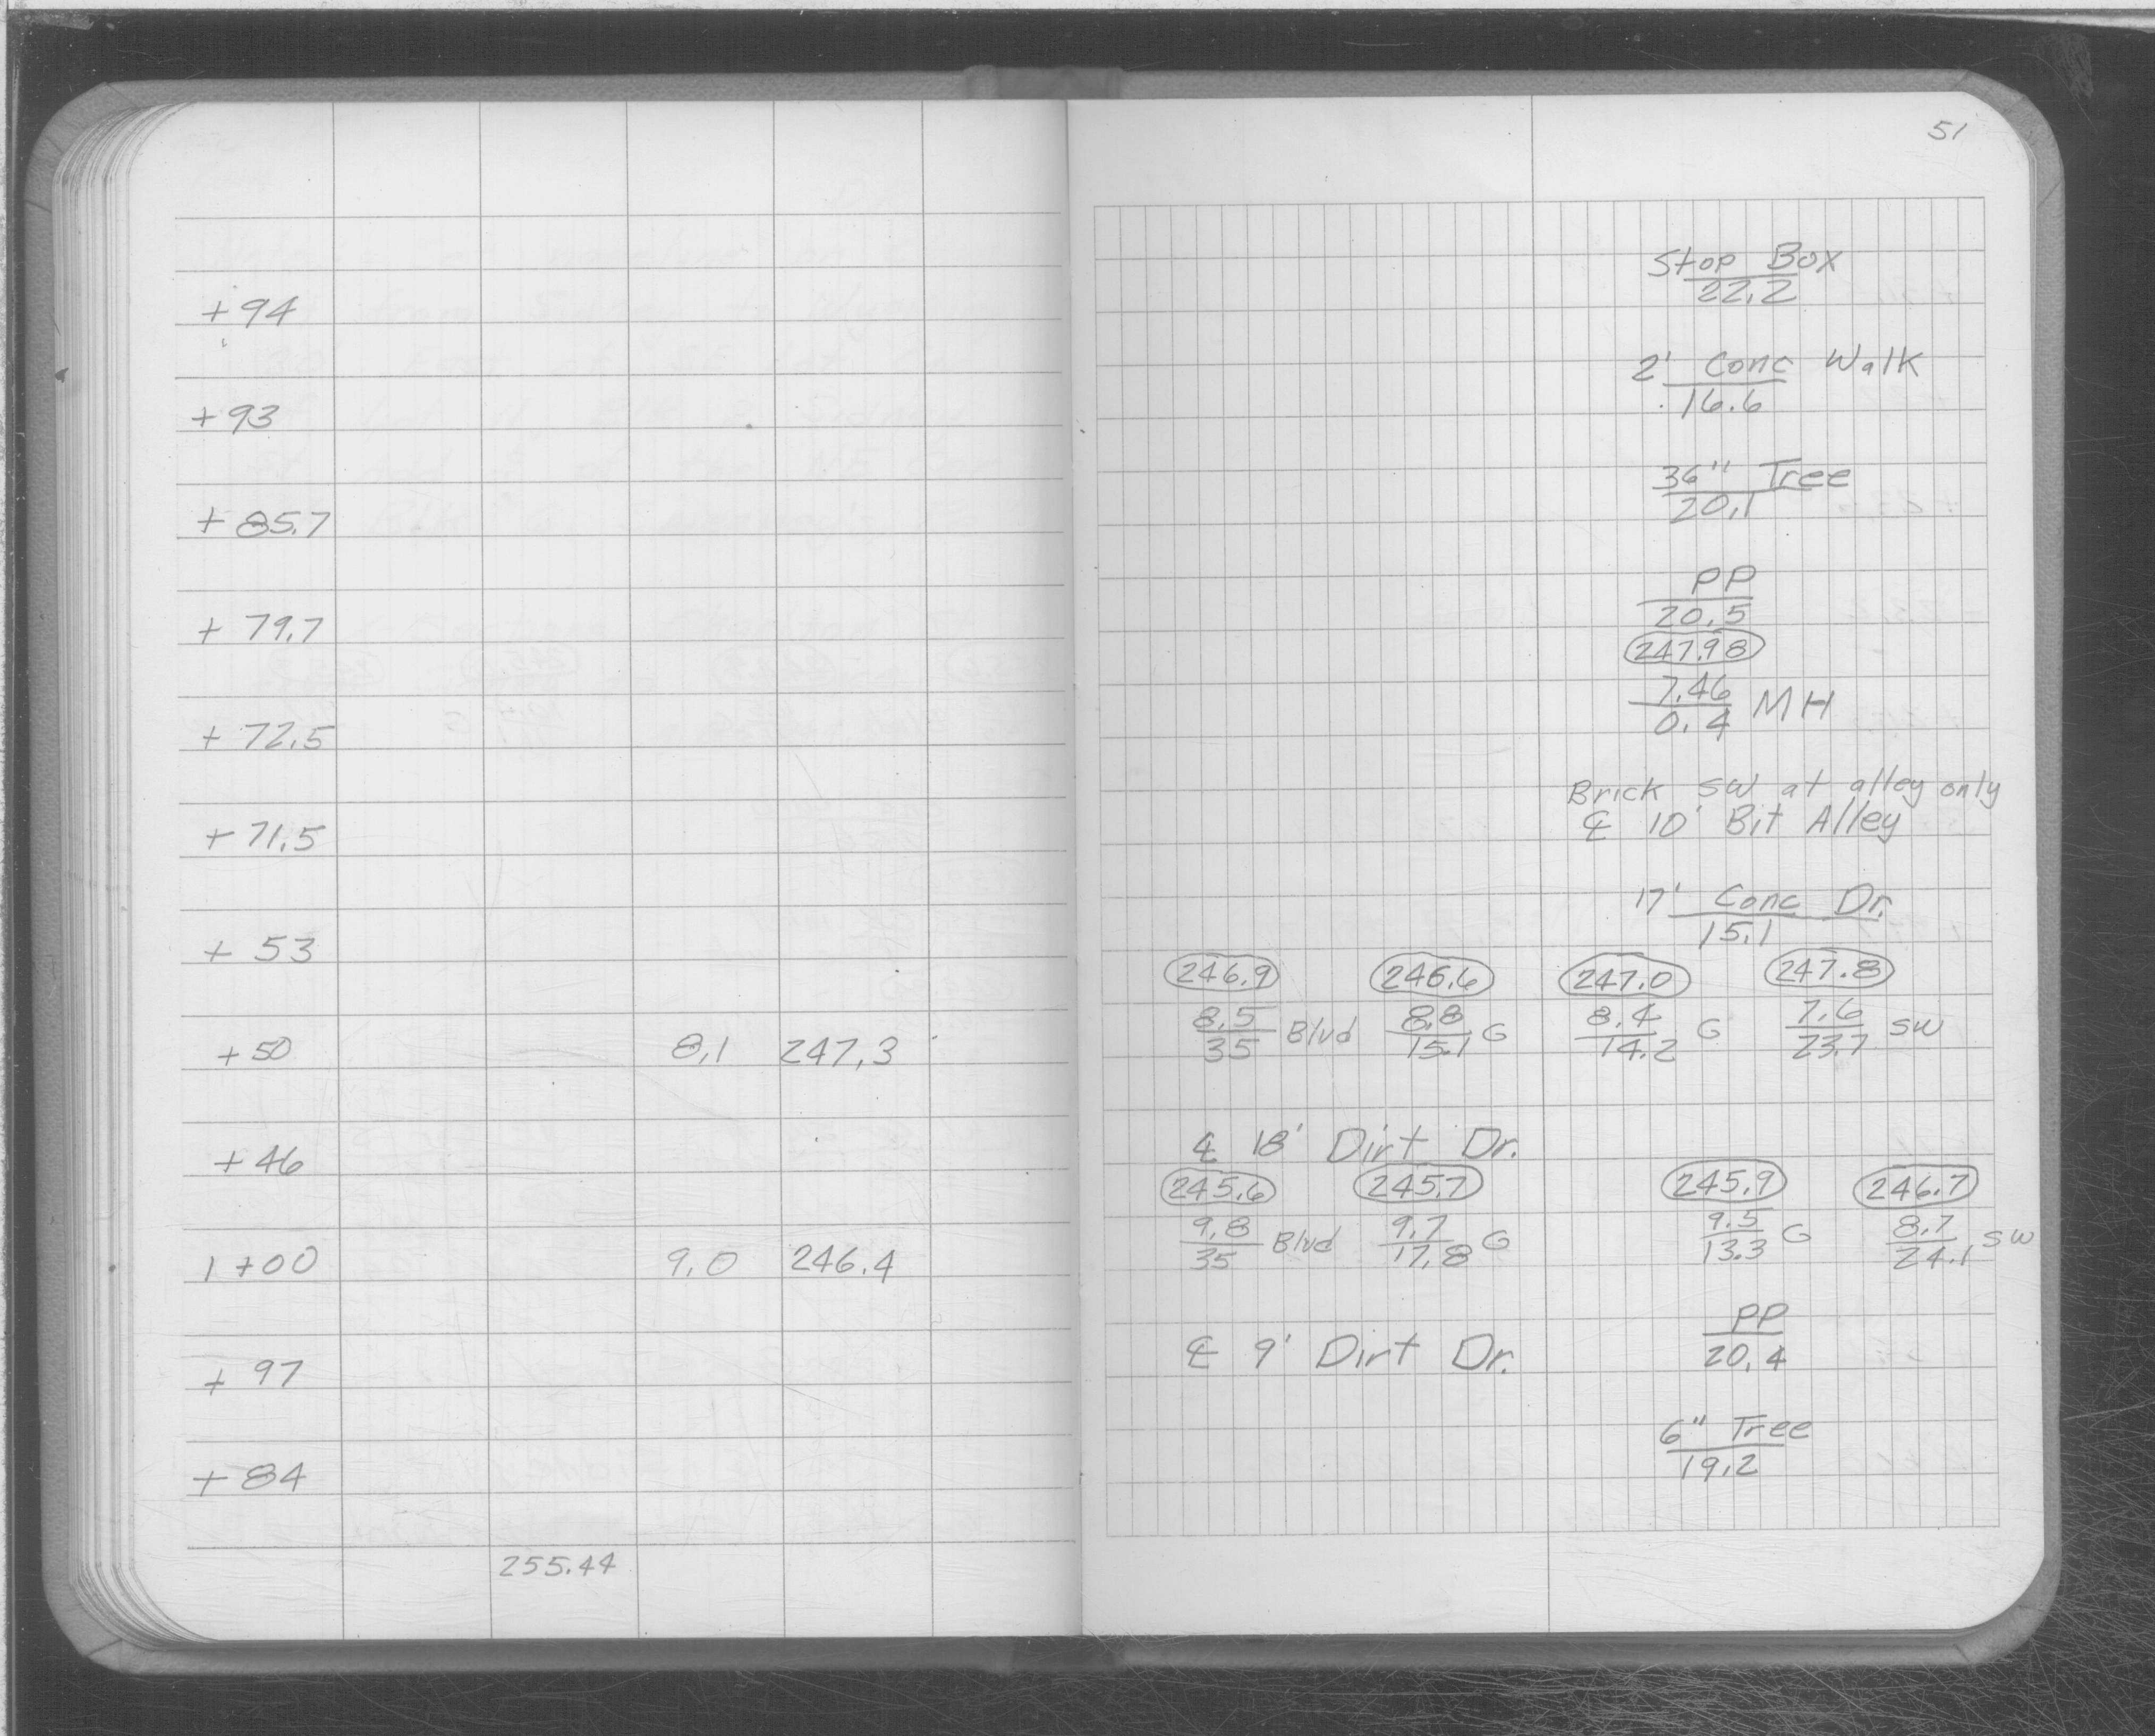 51
Stop Box
+94 22.2
2' Conc Walk
+93 16.6
36" Tree
+85.7 20.1
PP
+79.7 20.5
247.98
7.46
+72.5 0.4 MH
Brick SW at alley only
+71.5 ℄ 10' Bit Alley
17' Conc Dr.
+53 15.1
246.9 246.6 247.0 247.8
8.5 Blvd 8.8 G 8.4 G 7.6 SW
+50 8.1 247.3 35 15.1 14.2 23.7
+46 ℄ 18' Dirt Dr.
245.6 245.7 245.9 246.7
9.8 Blvd 9.7 G 9.5 G 8.7 SW
1+00 9.0 246.4 35 17.8 13.3 24.1
PP
+97 ℄ 9' Dirt Dr. 20.4
6" Tree
+84 19.2
255.44